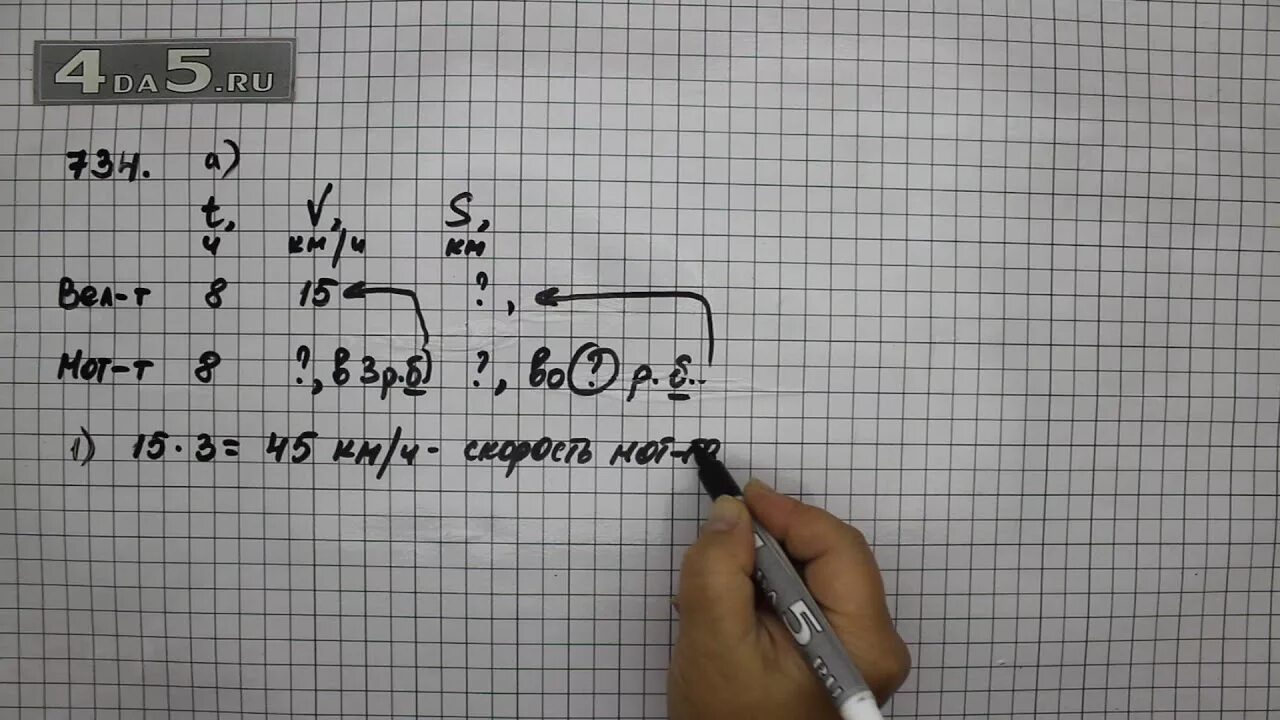 4DA5.RU
734. а)
t, V, S,
ч км/ч км
Вел-т 8 15 ?,
Мот-т 8 ?, в 3 р. б. ?, во ? р. б.
1) 15 · 3 = 45 км/ч - скорость мот-та